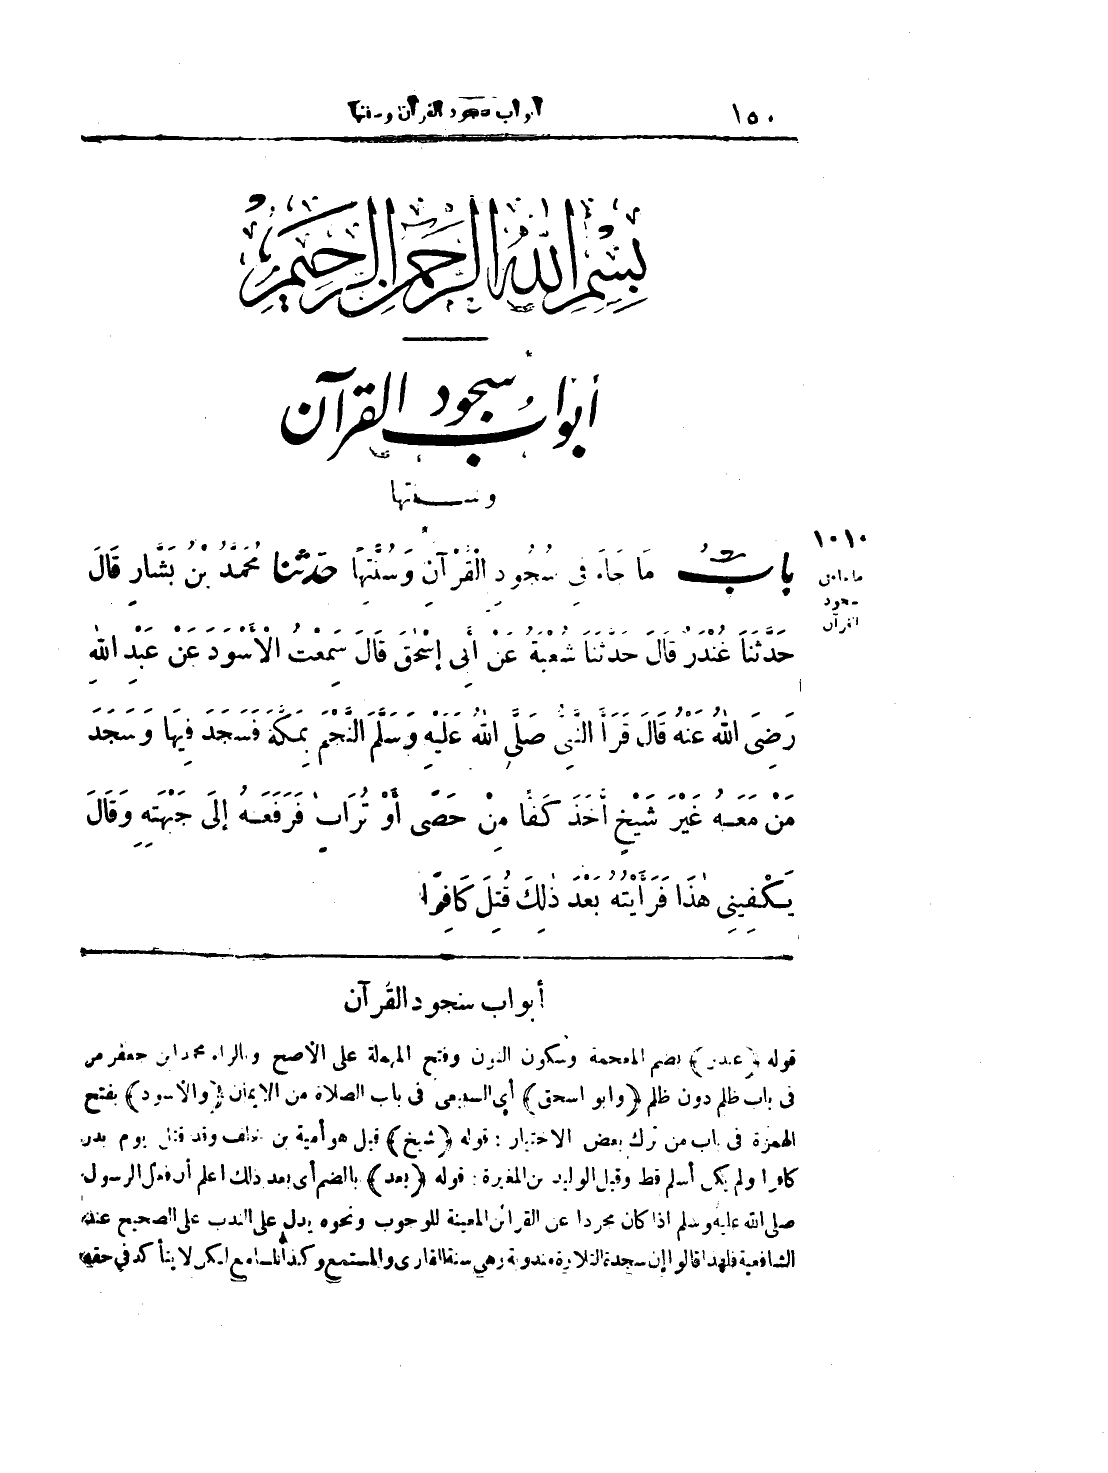 ١٥٠
أبواب سجود القرآن وسنتها
بِسْمِ اللَّهِ الرَّحْمٰنِ الرَّحِيمِ
أبواب سجود القرآن
وسنتها
١٠١٠
ما جاء في
سجود
القرآن
بابُ مَا جَاءَ فِي سُجُودِ الْقُرْآنِ وَسُنَّتِهَا حَدَّثَنَا مُحَمَّدُ بْنُ بَشَّارٍ قَالَ
حَدَّثَنَا غُنْدَرٌ قَالَ حَدَّثَنَا شُعْبَةُ عَنْ أَبِي إِسْحٰقَ قَالَ سَمِعْتُ الْأَسْوَدَ عَنْ عَبْدِ اللهِ
رَضِيَ اللهُ عَنْهُ قَالَ قَرَأَ النَّبِيُّ صَلَّى اللهُ عَلَيْهِ وَسَلَّمَ النَّجْمَ بِمَكَّةَ فَسَجَدَ فِيهَا وَسَجَدَ
مَنْ مَعَهُ غَيْرَ شَيْخٍ أَخَذَ كَفًّا مِنْ حَصًى أَوْ تُرَابٍ فَرَفَعَهُ إِلَى جَبْهَتِهِ وَقَالَ
يَكْفِينِي هٰذَا فَرَأَيْتُهُ بَعْدَ ذٰلِكَ قُتِلَ كَافِرًا
أبواب سجود القُرآن
قوله (غندر) بضم المعجمة وسكون النون وفتح المهملة على الأصح وبالراء محمد ابن جعفر مر
فى باب ظلم دون ظلم (وابو اسحق) أى السبيعى فى باب الصلاة من الايمان (والأسود) بفتح
الهمزة فى باب من ترك بعض الاختيار : قوله (شيخ) قيل هو أمية بن خلف وقد قتل يوم بدر
كافرا ولم يكن أسلم قط وقيل الوليد بن المغيرة : قوله (بعد) بالضم أى بعد ذلك اعلم أن فعل الرسول
صلى الله عليه وسلم اذا كان مجردا عن القرائن المعينة للوجوب ونحوه يدل على الندب على الصحيح عند
الشافعية فلهذا قالوا إن سجدة التلاوة مندوبة وهى سنة القارى والمستمع وكذا للسامع لكن لا يتأكد في حقه